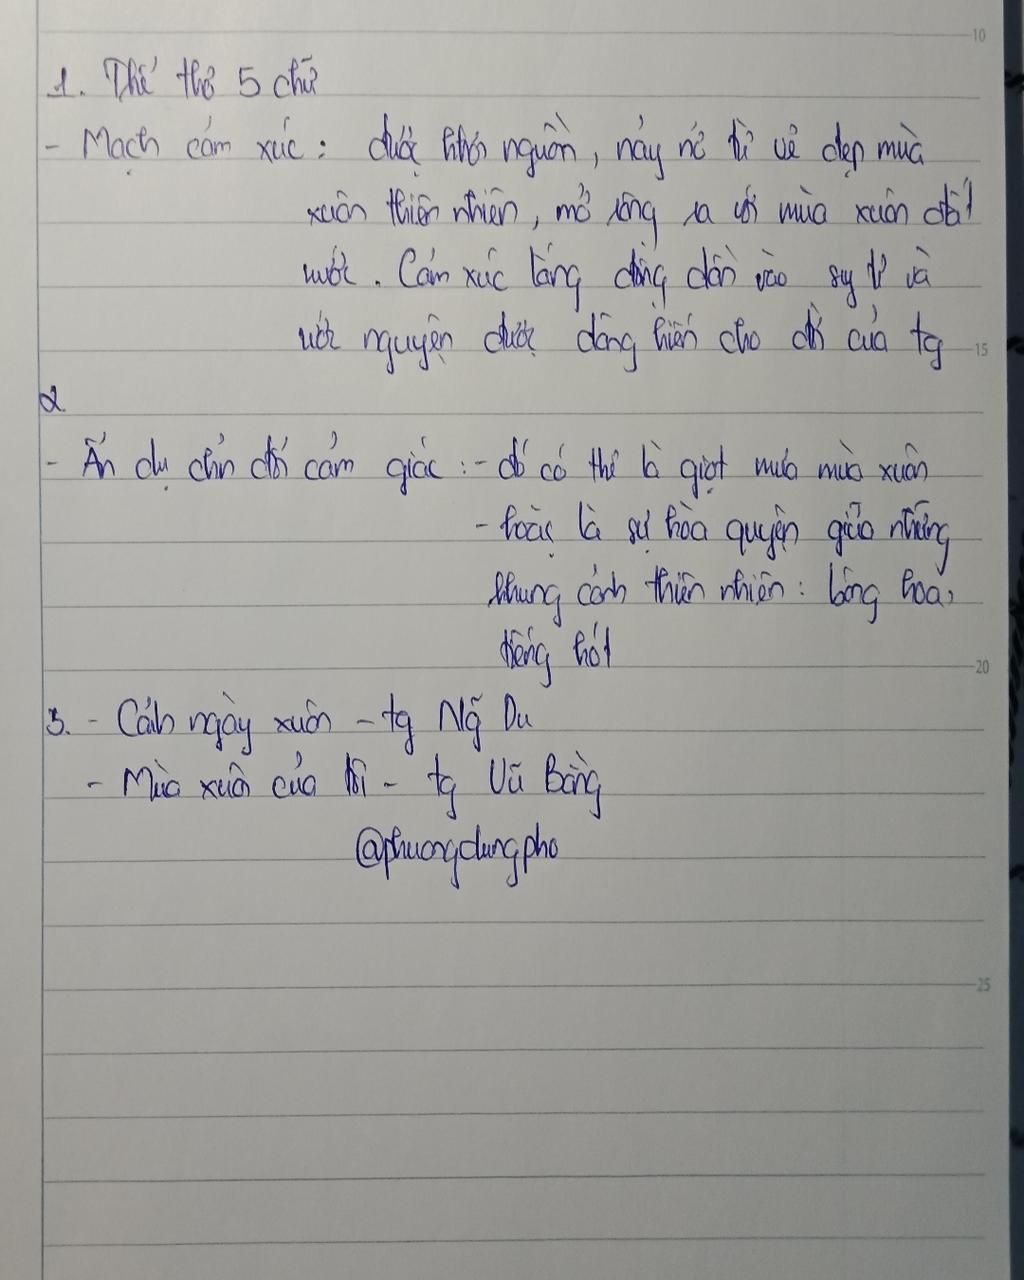 10
1. Thể thơ 5 chữ
- Mạch cảm xúc : được khơi nguồn, nảy nở từ vẻ đẹp mùa
xuân thiên nhiên, mở rộng ra với mùa xuân đất
nước. Cảm xúc lắng đọng dần vào suy tư và
ước nguyện được dâng hiến cho đời của tg
15
2
- Ẩn dụ chuyển đổi cảm giác : - đó có thể là giọt mưa mùa xuân
- hoặc là sự hòa quyện giữa những
khung cảnh thiên nhiên : bông hoa,
tiếng hót
20
3. - Cảnh ngày xuân - tg Ng~ Du
- Mùa xuân của tôi - tg Vũ Bằng
@phuongdungpho
25